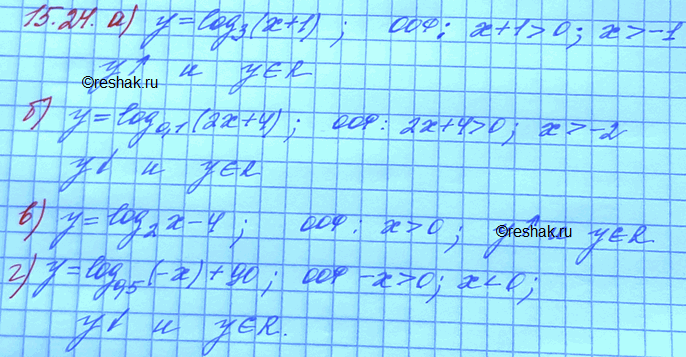 15.24. а) y=log₃(x+1) ; ООФ: x+1>0; x>-1
y↑ и y∈R
©reshak.ru
б) y=log₀,₁(2x+4) ; ООФ: 2x+4>0; x>-2
y↓ и y∈R
в) y=log₂x-4 ; ООФ: x>0 ; y↑ и y∈R
©reshak.ru
г) y=log₀,₅(-x)+40; ООФ -x>0; x<0;
y↓ и y∈R.